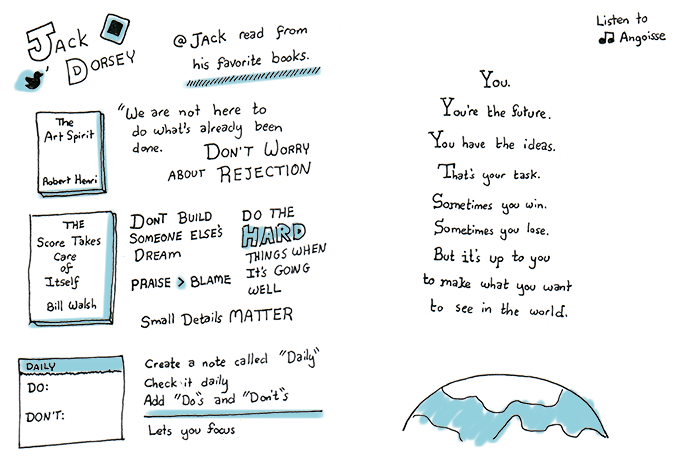 Jack
Dorsey
@Jack read from
his favorite books.
The
Art Spirit
Robert Henri
"We are not here to
do what's already been
done.
DON'T WORRY
ABOUT REJECTION
THE
Score Takes
Care
of
Itself
Bill Walsh
DONT BUILD
SOMEONE ELSE'S
DREAM
PRAISE > BLAME
DO THE
HARD
THINGS WHEN
IT'S GOING
WELL
Small Details MATTER
DAILY
DO:
DON'T:
Create a note called "Daily"
Check it daily
Add "Do"s and "Don't"s
Lets you focus
Listen to
Angoisse
You.
You're the future.
You have the ideas.
That's your task.
Sometimes you win.
Sometimes you lose.
But it's up to you
to make what you want
to see in the world.